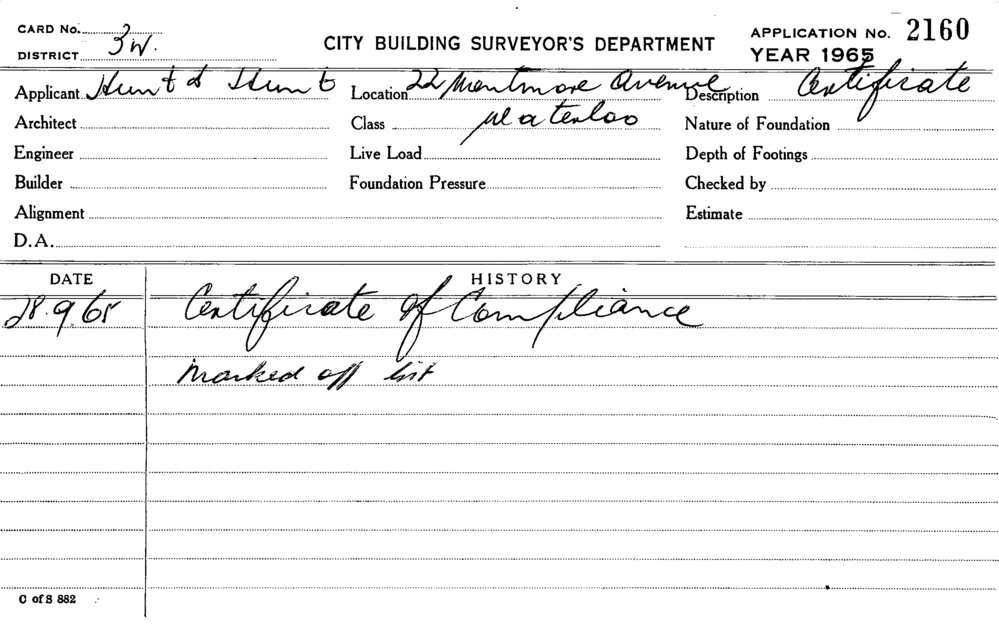 CARD No. APPLICATION No. 2160
DISTRICT 3W. CITY BUILDING SURVEYOR'S DEPARTMENT YEAR 1965
Applicant Hunt & Hunt Location 22 Mentmore Avenue Description Certificate
Architect Class Waterloo Nature of Foundation
Engineer Live Load Depth of Footings
Builder Foundation Pressure Checked by
Alignment Estimate
D.A.
DATE HISTORY
28.9.65 Certificate of Compliance
marked off list
C of S 882